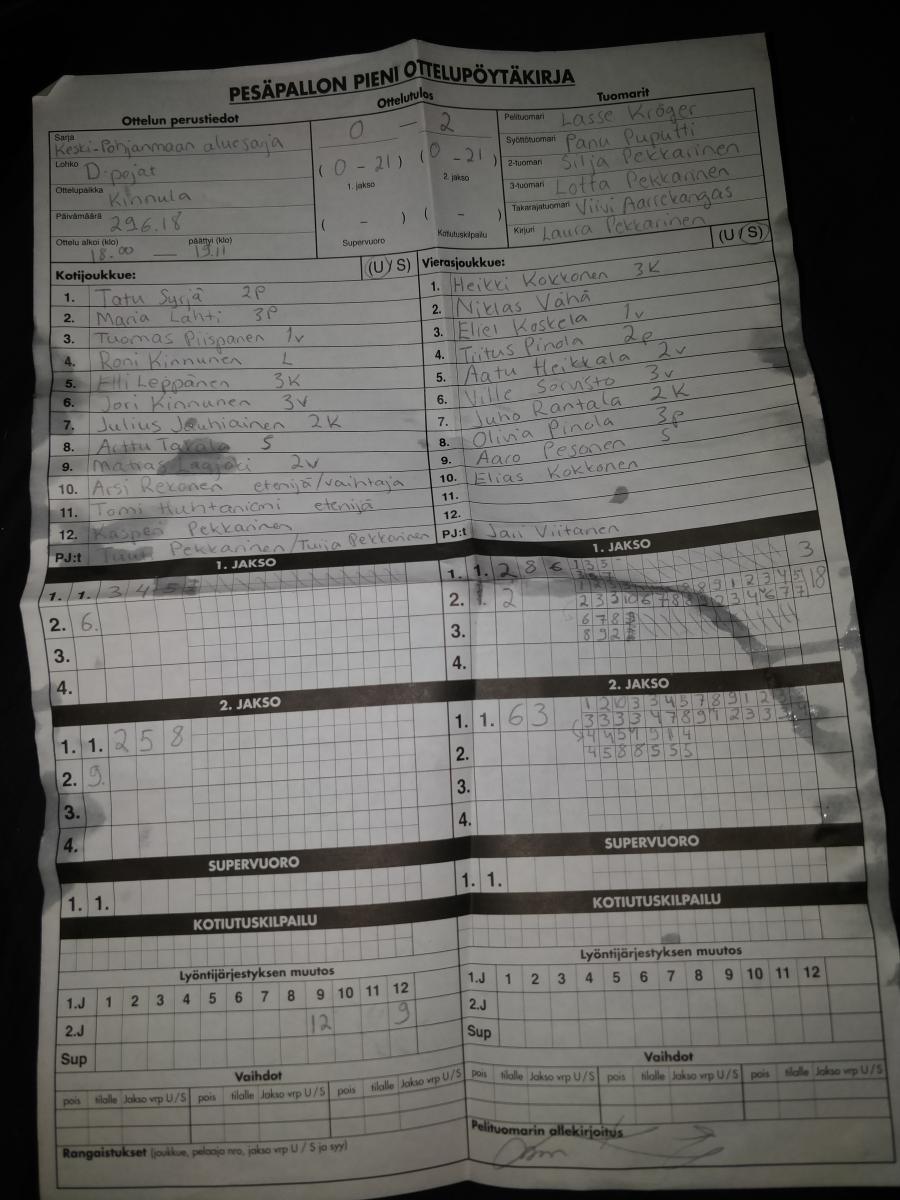 PESÄPALLON PIENI OTTELUPÖYTÄKIRJA
Ottelun perustiedot
Sarja
Keski-Pohjanmaan aluesarja
Lohko
D-pojat
Ottelupaikka
Kinnula
Päivämäärä
29.6.18
Ottelu alkoi (klo) päättyi (klo)
18.00 — 19.11
Ottelutulos
0 — 2
(0 - 21) (0 - 21)
1. jakso 2. jakso
( - ) ( - )
Supervuoro Kotiutuskilpailu
Tuomarit
Pelituomari Lasse Kröger
Syöttötuomari Panu Puputti
2-tuomari Silja Pekkarinen
3-tuomari Lotta Pekkarinen
Takarajatuomari Viivi Aarrekangas
Kirjuri Laura Pekkarinen
Kotijoukkue: (U/S)
1. Tatu Syrjä 2P
2. Maria Lahti 3P
3. Tuomas Piispanen 1v
4. Roni Kinnunen L
5. Elli Leppänen 3K
6. Jori Kinnunen 3v
7. Julius Jauhiainen 2K
8. Arttu Takala S
9. Matias Laajoki 2v
10. Arsi Rekonen etenijä/vaihtaja
11. Tomi Huhtaniemi etenijä
12. Kasperi Pekkarinen
PJ:t Pekkarinen/Tuija Pekkarinen
Vierasjoukkue: (U/S)
1. Heikki Kokkonen 3K
2. Niklas Vähä
3. Eliel Koskela 1v
4. Tiitus Pinola 2p
5. Aatu Heikkala 2v
6. Ville Sorvisto 3v
7. Juho Rantala 2K
8. Olivia Pinola 3p
9. Aaro Pesonen S
10. Elias Kokkonen
11.
12.
PJ:t Jari Viitanen
1. JAKSO
1. 1. 3 4
2. 6.
3.
4.
2. JAKSO
1. 1. 2 5 8
2. 9.
3.
4.
SUPERVUORO
1. 1.
KOTIUTUSKILPAILU
Lyöntijärjestyksen muutos
1.J 1 2 3 4 5 6 7 8 9 10 11 12
2.J 12 9
Sup
Vaihdot
pois tilalle Jakso vrp U/S pois tilalle Jakso vrp U/S pois tilalle Jakso vrp U/S
Rangaistukset (joukkue, pelaaja nro, jakso vrp U / S ja syy)
1. JAKSO
1. 1. 2 8 6 1 3 5 3
2. 1. 2 18
3. 6 7 8
4.
2. JAKSO
1. 1. 6 3 1 2 10 3 3 4 5 7 8 9 1 2
3 3 3 3 4 7 8 9 1 2 3 3
2. 4 5 8 8 5 5 5
3.
4.
SUPERVUORO
1. 1.
KOTIUTUSKILPAILU
Lyöntijärjestyksen muutos
1.J 1 2 3 4 5 6 7 8 9 10 11 12
2.J
Sup
Vaihdot
pois tilalle Jakso vrp U/S pois tilalle Jakso vrp U/S pois tilalle Jakso vrp U/S
Pelituomarin allekirjoitus